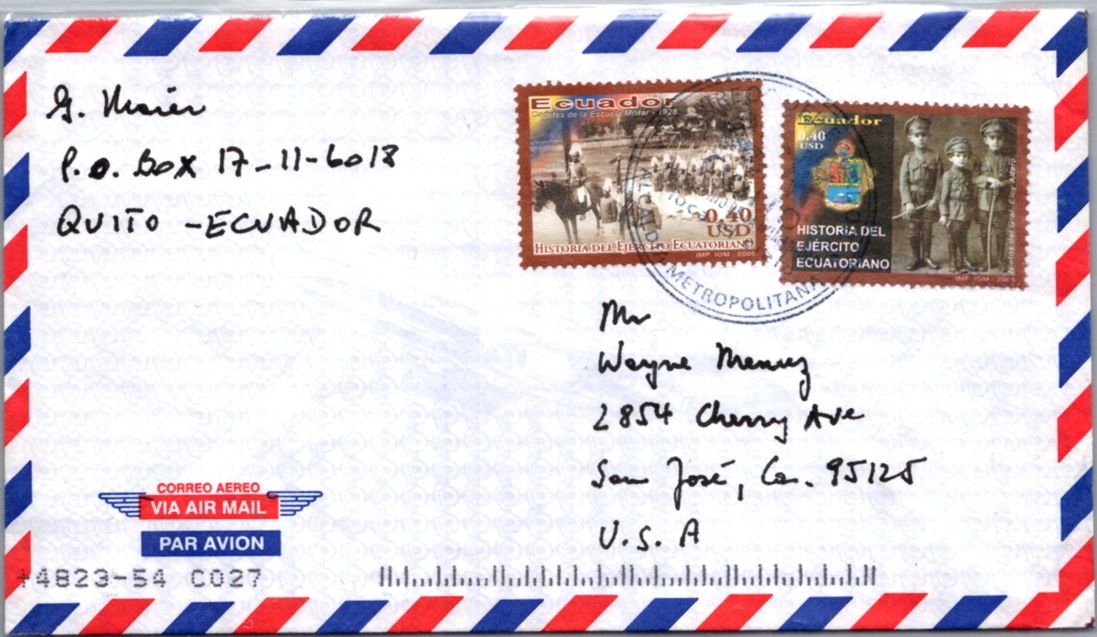 G. Maier
P.O. Box 17-11-6018
QUITO - ECUADOR
Ecuador
Cadetes de la Escuela Militar - 1928
0.40
USD
HISTORIA DEL EJÉRCITO ECUATORIANO
IMP. IGM - 2005
Ecuador
0.40
USD
HISTORIA DEL
EJÉRCITO
ECUATORIANO
Nietos del Gral. Eloy Alfaro
METROPOLITANA
Mr
Wayne Menuz
2854 Cherry Ave
San José, Ca. 95125
U.S.A
CORREO AEREO
VIA AIR MAIL
PAR AVION
+4823-54 C027